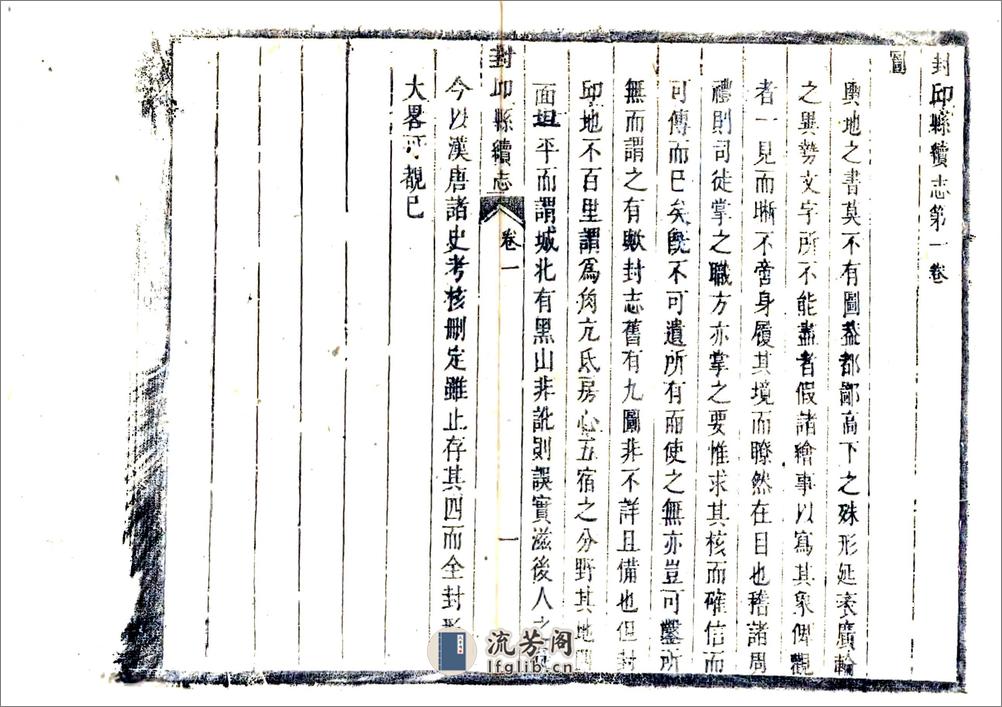 封邱縣續志第一卷
圖
輿地之書莫不有圖葢都鄙高下之殊形延袤廣輪
之異勢文字所不能盡者假諸繪事以寫其象俾觀
者一見而晰不啻身履其境而瞭然在目也稽諸周
禮則司徒掌之職方亦掌之要惟求其核而確信而
可傳而已矣旣不可遺所有而使之無亦豈可鑿所
無而謂之有歟封志舊有九圖非不詳且備也但封
邱地不百里謂爲角亢氐房心五宿之分野其地
面坦平而謂城北有黑山非訛則誤實滋後人之
封邱縣續志
卷一
一
今以漢唐諸史考核刪定雖止存其四而全封形
大畧可覩已
流芳阁
lfglib.cn